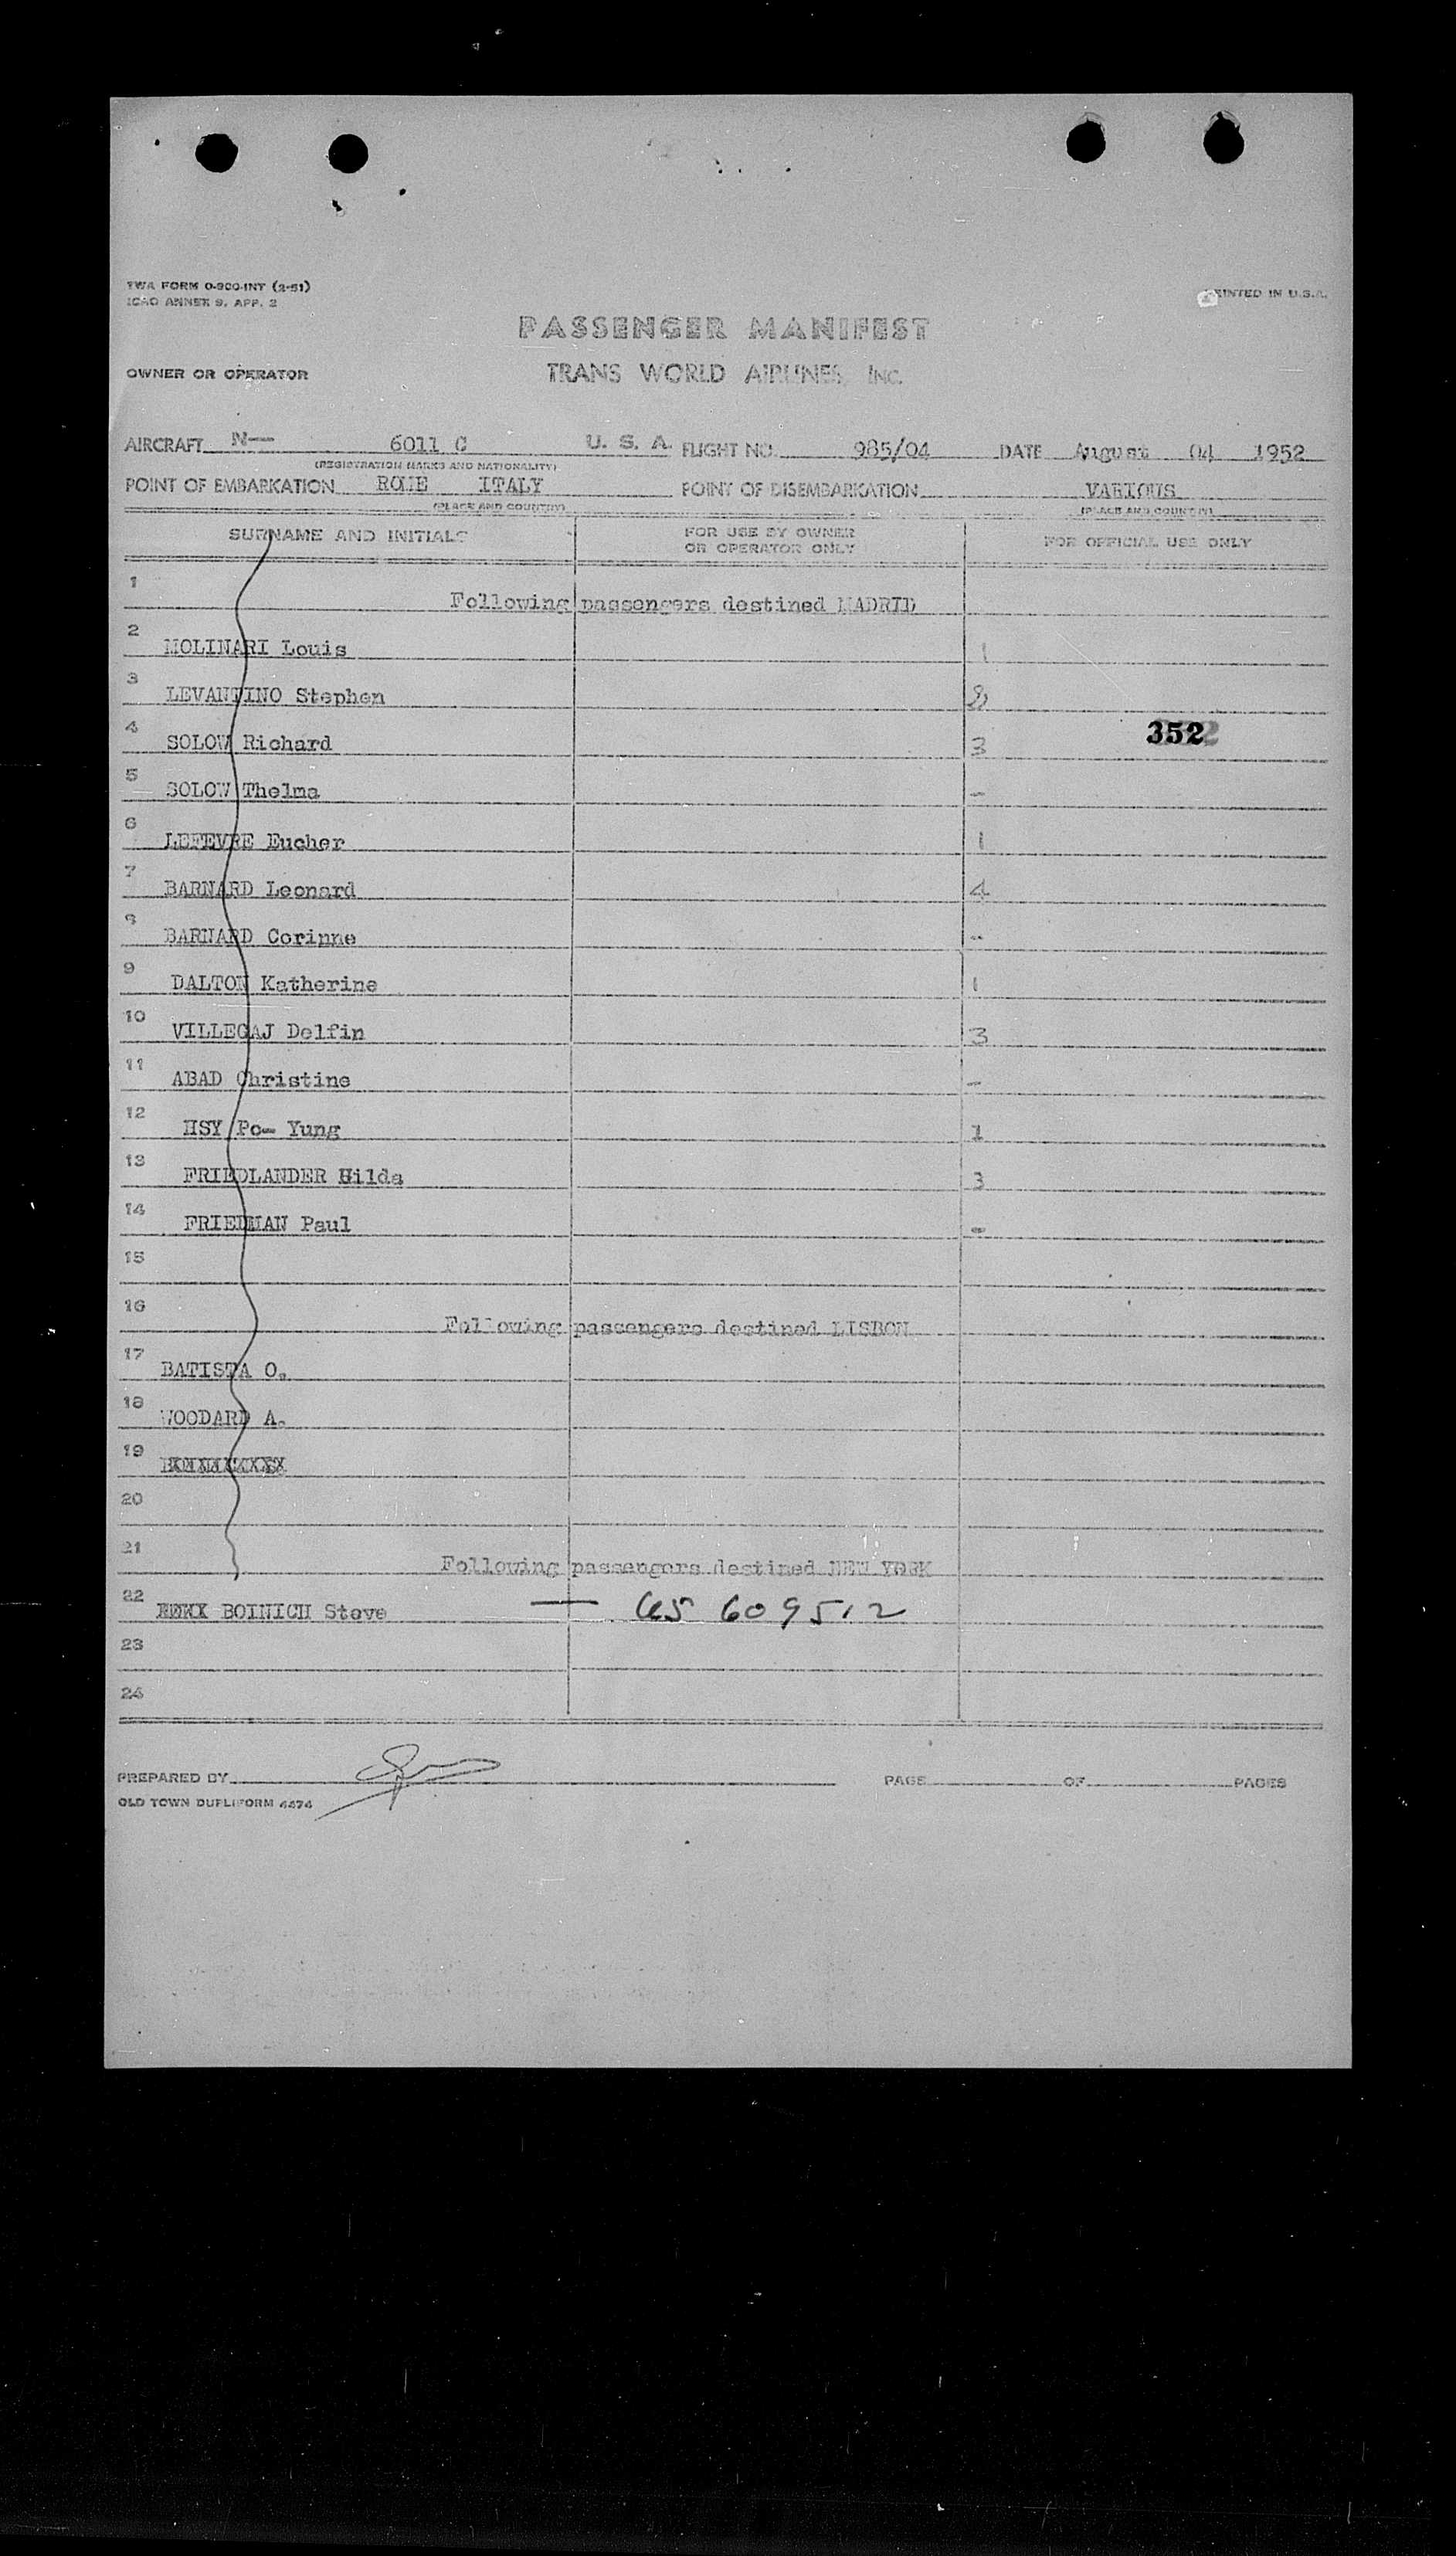 TWA FORM 0-900-INT (2-51)
ICAO ANNEX 9, APP. 2
PRINTED IN U.S.A.
PASSENGER MANIFEST
OWNER OR OPERATOR TRANS WORLD AIRLINES, INC.
AIRCRAFT N— 6011 C U. S. A. FLIGHT NO. 985/04 DATE August 04 1952
(REGISTRATION MARKS AND NATIONALITY)
POINT OF EMBARKATION ROME ITALY POINT OF DISEMBARKATION VARIOUS
(PLACE AND COUNTRY) (PLACE AND COUNTRY)
SURNAME AND INITIALS FOR USE BY OWNER OR OPERATOR ONLY FOR OFFICIAL USE ONLY
1 Following passengers destined MADRID
2 MOLINARI Louis 1
3 LEVANTINO Stephen
4 SOLOW Richard 3 352
5 SOLOW Thelma -
6 LEFEVRE Eucher 1
7 BARNARD Leonard 4
8 BARNARD Corinne -
9 DALTON Katherine 1
10 VILLEGAJ Delfin 3
11 ABAD Christine -
12 HSY Po- Yung 1
13 FRIEDLANDER Hilda 3
14 FRIEDMAN Paul -
15
16 Following passengers destined LISBON
17 BATISTA O.
18 WOODARD A.
19
20
21 Following passengers destined NEW YORK
22 BOINICH Steve — 609512
23
24
PREPARED BY PAGE OF PAGES
OLD TOWN DUPLIFORM 4474